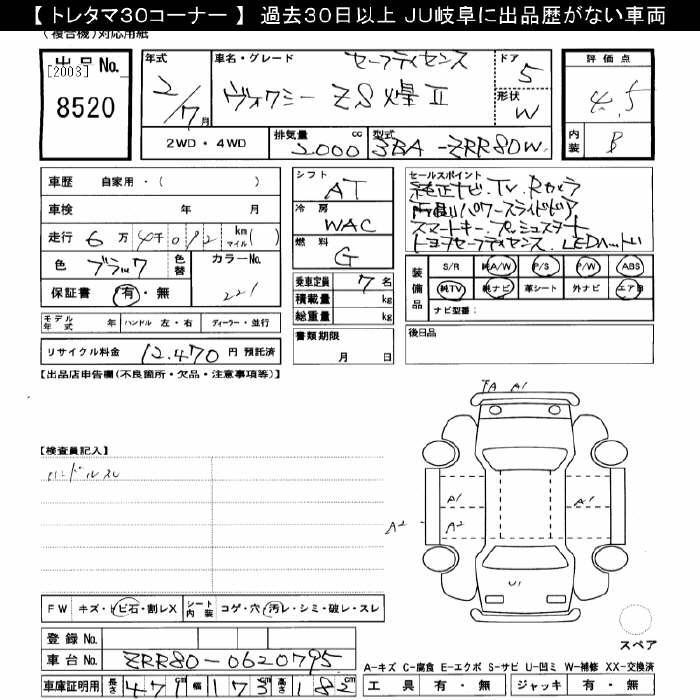 【 トレタマ30コーナー 】 過去30日以上 JU岐阜に出品歴がない車両
(複合機)対応用紙
出品No.
[2003]
8520
年式
2/7月
車名・グレード
セーフティセンス
ヴォクシー ZS煌Ⅱ
ドア
5
形状
W
評価点
4.5
内装
B
2WD・4WD
排気量 2000 cc
型式 3BA-ZRR80W
車歴 自家用・( )
車検 年 月
走行 6万4千012 km マイル( )
色 ブラック
色替
カラーNo. 221
保証書 有・無
シフト AT
冷房 WAC
燃料 G
乗車定員 7名
積載量 kg
総重量 kg
書類期限
月 日
セールスポイント
純正ナビ.TV.Rカメラ
両側パワースライドドア
スマートキー.プッシュスタート
トヨタセーフティセンス.LEDヘッド
装備品
S/R 純A/W P/S P/W ABS
純TV 純ナビ 革シート 外ナビ エアB
ナビ型番:
モデル年式 年 ハンドル 左・右 ディーラー・並行
リサイクル料金 12,470 円 預託済
後日品
【出品店申告欄(不良箇所・欠品・注意事項等)】
【検査員記入】
ハンドルスレ
A1
A1
A1
A2
A2
U1
スペア
FW キズ・トビ石・割レX シート内装 コゲ・穴・汚レ・シミ・破レ・スレ
登録No.
車台No. ZRR80-0620795
車庫証明用 長さ 471cm 幅 173cm 高さ 182cm
A-キズ C-腐食 E-エクボ S-サビ U-凹ミ W-補修 XX-交換済
工具 有・無 ジャッキ 有・無